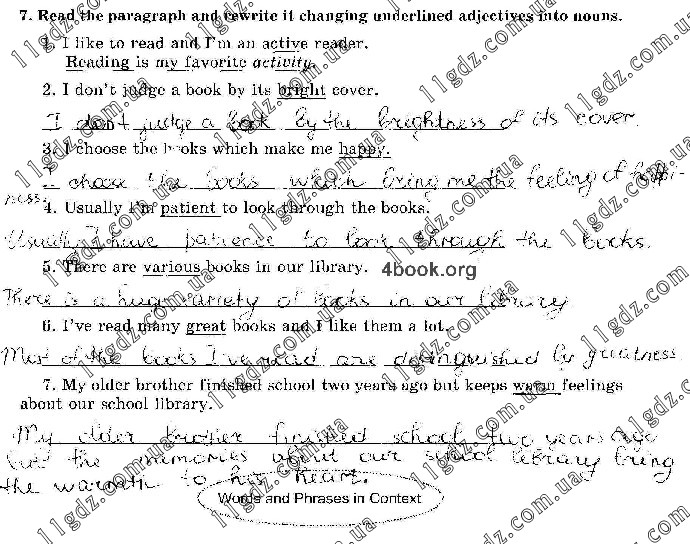 7. Read the paragraph and rewrite it changing underlined adjectives into nouns.
1. I like to read and I'm an active reader.
Reading is my favorite activity.
2. I don't judge a book by its bright cover.
I don't judge a book by the brightness of its cover.
3. I choose the books which make me happy.
I choose the books which bring me the feeling of happi-
ness.
4. Usually I'm patient to look through the books.
Usually I have patience to look through the books.
5. There are various books in our library. 4book.org
There is a huge variety of books in our library
6. I've read many great books and I like them a lot.
Most of the books I've read are distinguished by greatness.
7. My older brother finished school two years ago but keeps warm feelings
about our school library.
My older brother finished school two years ago
but the memories about our school library bring
the warmth to his heart.
Words and Phrases in Context
11gdz.com.ua